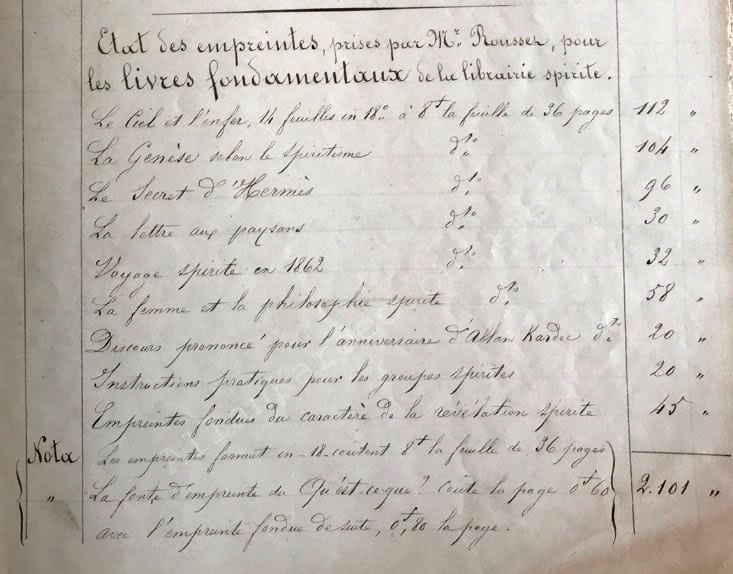 Etat des empreintes, prises par Mr. Rousset, pour
les livres fondamentaux de la librairie spirite.
Le Ciel et l'enfer, 14 feuilles in 18o à 8f la feuille de 36 pages 112 "
La Genèse selon le spiritisme do. 104 "
Le Secret d'Hermès do. 96 "
La lettre aux paysans do. 30 "
Voyage spirite en 1862 do. 32 "
La femme et la philosophie spirite do. 58 "
Discours prononcé pour l'anniversaire d'Allan Kardec do. 20 "
Instructions pratiques pour les groupes spirites 20 "
Empreintes fondues du caractère de la révélation spirite 45 "
Nota Les empreintes format in-18-coutent 8f la feuille de 36 pages
" La fonte d'empreinte du Qu'est-ce-que? coûte la page 0f60 2.101 "
avec l'empreinte fondue de suite, 0f,80 la page.